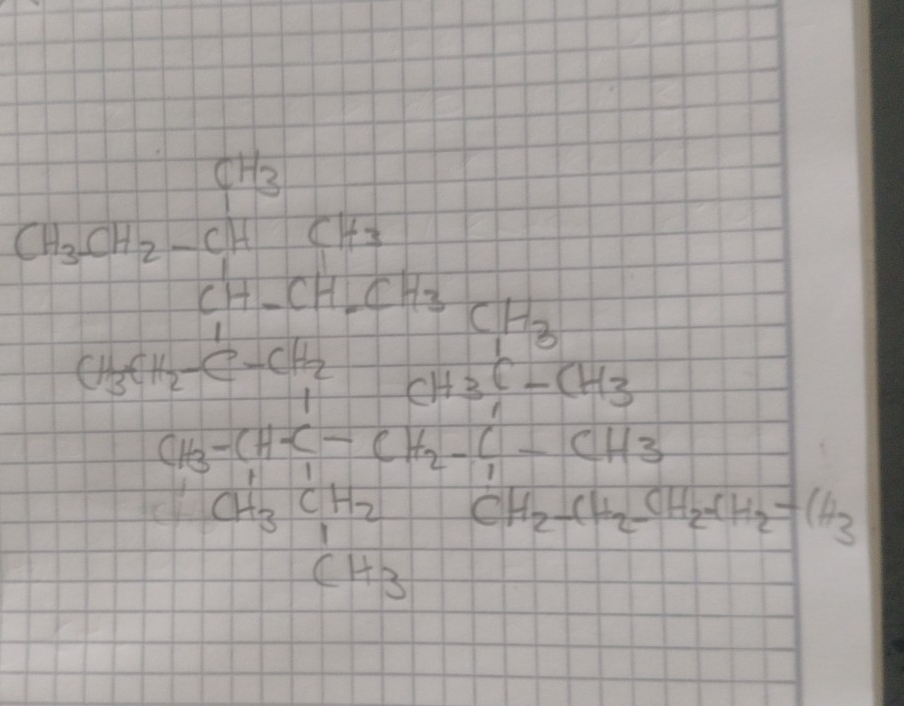 CH3
CH3-CH2-CH CH3
CH-CH-CH3
CH3
CH3CH2-C-CH2
CH3 C-CH3
CH3-CH-C-CH2-C-CH3
CH3 CH2 CH2-CH2-CH2-CH2-CH3
CH3